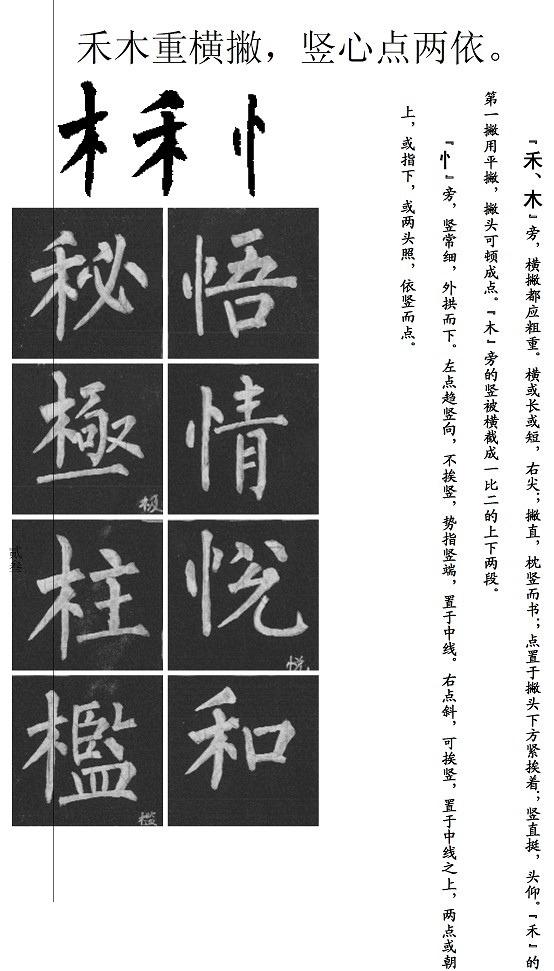 禾木重横撇，竖心点两依。
『禾、木』旁，横撇都应粗重。横或长或短，右尖；撇直，枕竖而书；点置于撇头下方紧挨着；竖直挺，头仰。『禾』的
第一撇用平撇，撇头可顿成点。『木』旁的竖被横截成一比二的上下两段。
『忄』旁，竖常细，外拱而下。左点趋竖向，不挨竖，势指竖端，置于中线。右点斜，可挨竖，置于中线之上，两点或朝
上，或指下，或两头照，依竖而点。
木禾忄
秘悟
極情
极
柱悦
悦
檻和
槛
贰叁